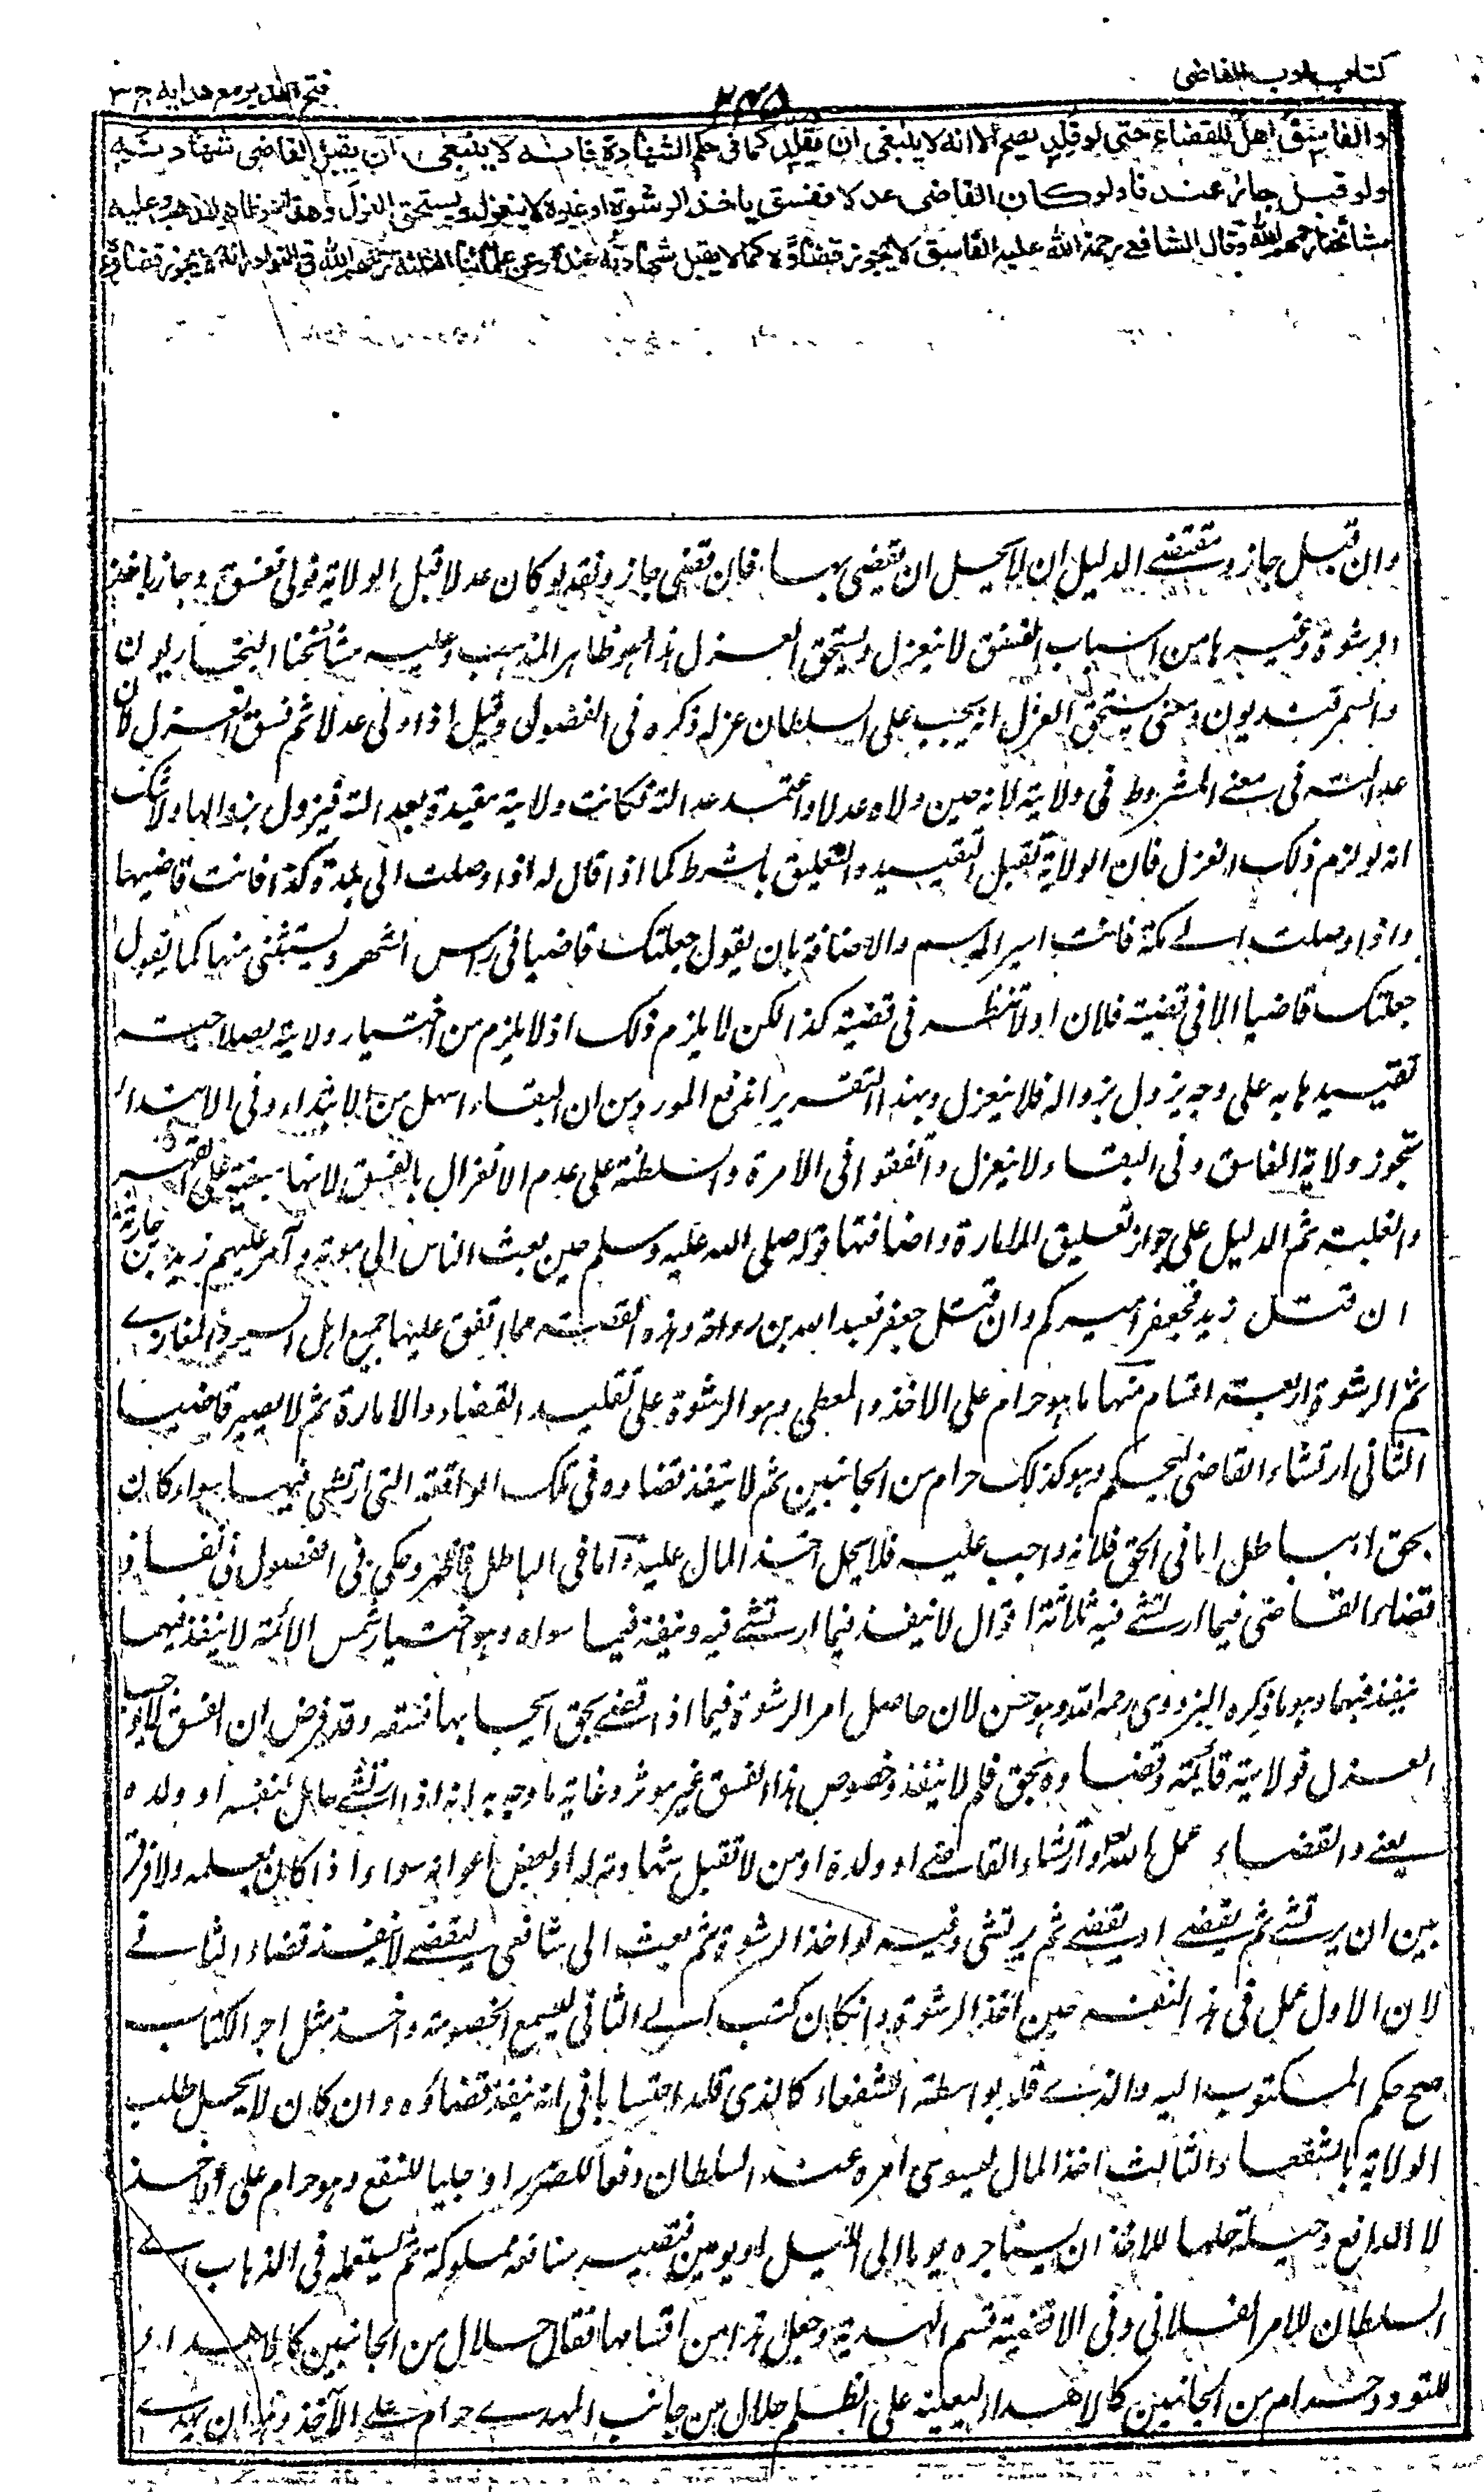 كتاب ادب القاضي
٢٤٥
فتح القدير مع هدايه ج٣
والفاسق اهل للقضاء حتى لو قلد يصح الا انه لا ينبغي ان يقلد كما في حكم الشهادة فانه لا ينبغي ان يقبل القاضي شهادته
ولو قبل جاز عندنا ولو كان القاضي عدلا ففسق باخذ الرشوة او غيره لا ينعزل ويستحق العزل وهذا هو ظاهر المذهب وعليه
مشائخنا رحمهم الله وقال الشافعي رحمة الله عليه الفاسق لا يجوز قضاؤه كما لا يقبل شهادته عنده وعن علمائنا الثلثة رحمهم الله في النوادر انه لا يجوز قضاؤه
وان قبل جاز ومقتضى الدليل ان لا يحل ان يقضي بها فان قضى جاز ونفذ ولو كان عدلا قبل الولاية فولى ففسق وجاز باخذ
الرشوة وغيرها من اسباب الفسق لا ينعزل ويستحق العزل هذا هو ظاهر المذهب وعليه مشائخنا البخاريون
والسمرقنديون ومعنى يستحق العزل انه يجب على السلطان عزله ذكره في الفصول وقيل اذا ولى عدلا ثم فسق انعزل لان
عدالته في معنى المشروط في ولايته لانه حين ولاه عدلا واعتمد عدالته فكانت ولايته مقيدة بعدالته فيزول بزوالها ولا شك
انه لو لزم ذلك انعزل فان الولاية تقبل التقييد والتعليق بالشرط كما اذا قال له اذا وصلت الى بلدة كذا فانت قاضيها
واذا وصلت الى مكة فانت امير الموسم والاضافة بان يقول جعلتك قاضيا في راس الشهر ويستثنى منها كما يقول
جعلتك قاضيا الا في قضية فلان او لا تنظر في قضية كذا لكن لا يلزم ذلك اذ لا يلزم من اختيار ولايته بصلاحيته
تقييدها به على وجه يزول بزواله فلا ينعزل وبهذا التقرير اندفع المورد من ان البقاء اسهل من الابتداء وفي الابتداء
تجوز ولاية الفاسق وفي البقاء لا ينعزل واتفقوا في الامرة والسلطنة على عدم الانعزال بالفسق لانها مبنية على القهر
والغلبة ثم الدليل على جواز تعليق الامارة واضافتها قوله صلى الله عليه وسلم حين بعث الناس الى موته وآمر عليهم زيد بن حارثة
ان قتل زيد فجعفر اميركم وان قتل جعفر فعبد الله بن رواحة وهذه القصة مما اتفق عليها جميع اهل السير والمغازي
ثم الرشوة اربعة اقسام منها ما هو حرام على الاخذ والمعطي وهو الرشوة على تقليد القضاء والامارة ثم لا يصير قاضيا
الثاني ارتشاء القاضي ليحكم وهو كذلك حرام من الجانبين ثم لا ينفذ قضاؤه في تلك الواقعة التي ارتشى فيها سواء كان
بحق او بباطل اما في الحق فلانه واجب عليه فلا يحل اخذ المال عليه واما في الباطل فاظهر وحكى في الفصول في نفاذ
قضاء القاضي فيما ارتشى فيه ثلاثة اقوال لا ينفذ فيما ارتشى فيه وينفذ فيما سواه وهو اختيار شمس الائمة لا ينفذ فيهما
ينفذ فيهما وهو ما ذكره البزدوي رحمه الله وهو حسن لان حاصل امر الرشوة فيما اذا قضى بحق ايجابها فسقه وقد فرض ان الفسق لا يوجب
العزل فولايته قائمة وقضاؤه بحق فلم لا ينفذ وخصوص هذا الفسق غير موثر وغاية ما وجه به انه اذا ارتشى عامل لنفسه او ولده
يعني والقضاء عمل لله تعالى وارتشاء القاضي او ولده او من لا تقبل شهادته له او بعض اعوانه سواء اذا كان بعلمه ولا فرق
بين ان يرتشي ثم يقضي او يقضي ثم يرتشي وفيه لو اخذ الرشوة ثم بعث الى شافعي ليقضي لا ينفذ قضاء الثاني
لان الاول عمل في هذا لنفسه حين اخذ الرشوة وان كان كتب الى الثاني ليسمع الخصومة واخذ مثل اجر الكتاب
صح حكم المكتوب اليه والذي قلد بواسطة الشفعاء كالذي قلد احتسابا في انه ينفذ قضاؤه وان كان لا يحل طلب
الولاية بالشفعاء والثالث اخذ المال ليسوي امره عند السلطان دفعا للضرر او جلبا للنفع وهو حرام على الاخذ
لا الدافع وحيلة حلها للاخذ ان يستاجره يوما الى الليل او يومين فتصير منافعه مملوكة ثم يستعمله في الذهاب الى
السلطان للامر الفلاني وفي الاقضية قسم الهدية وجعل هذا من اقسامها فقال حلال من الجانبين كالاهداء
للتودد وحرام من الجانبين كالاهداء ليعينه على الظلم حلال من جانب المهدي حرام على الآخذ وهو ان يهدي